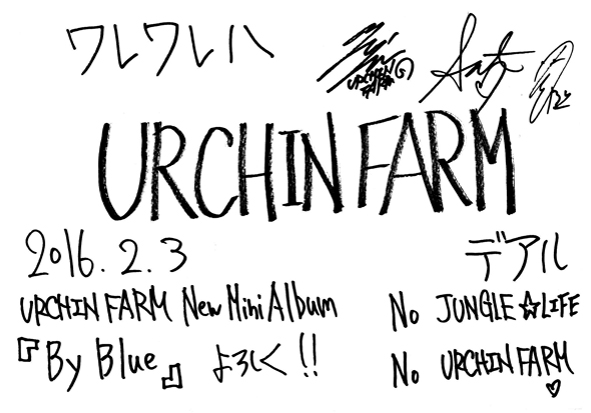 ワレワレハ
URCHIN FARM
デアル
2016.2.3
URCHIN FARM New Mini Album
『By Blue』 よろしく!!
No JUNGLE☆LIFE
No URCHIN FARM♡